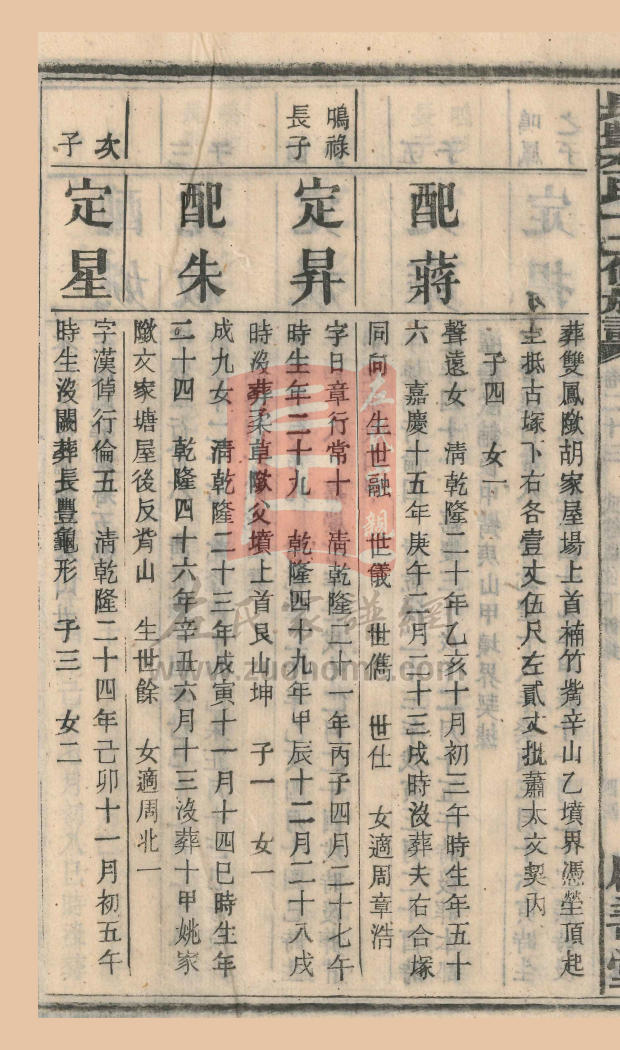 葬雙鳳歐胡家屋場上首楠竹嘴辛山乙墳界憑塋頂起
至抵古塚下右各壹丈伍尺左貳丈批蕭太交契內
子四 女一
配蔣
聲遠女 淸乾隆二十年乙亥十月初三午時生年五十
六 嘉慶十五年庚午二月二十三戌時沒葬夫右合塚
同向 生世融 世儀 世儁 世仕 女適周章浩
鳴祿
長子
定昇
字日章行常十 淸乾隆二十一年丙子四月二十七午
時生年二十九 乾隆四十九年甲辰十二月二十八戌
時沒葬柔草歐父墳上首艮山坤 子一 女一
配朱
成九女 淸乾隆二十三年戌寅十一月十四巳時生年
二十四 乾隆四十六年辛丑六月十三沒葬十甲姚家
歐交家塘屋後反背山 生世餘 女適周北一
次
子
定星
字漢倬行倫五 淸乾隆二十四年己卯十一月初五午
時生沒闕葬長豐龜形 子三 女二
左氏家譜網
www.zuohome.com